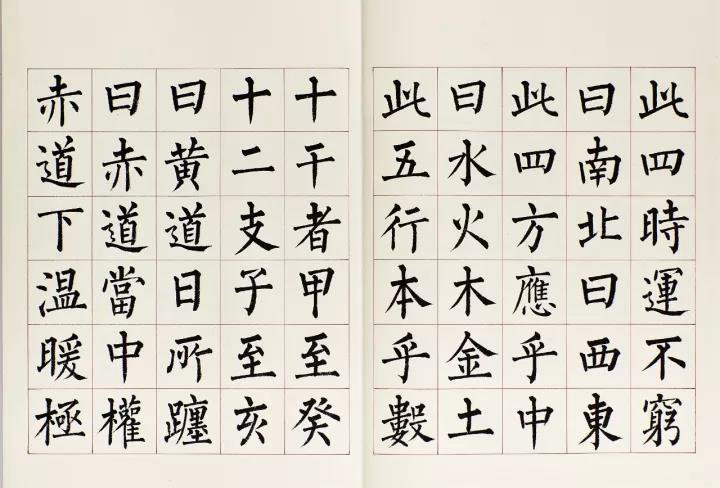 此四時運不窮
曰南北曰西東
此四方應乎中
曰水火木金土
此五行本乎數
十干者甲至癸
十二支子至亥
曰黃道日所躔
曰赤道當中權
赤道下温暖極